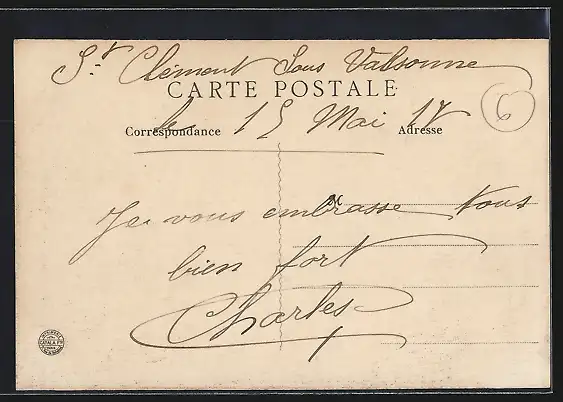 St Clément Sous Valsonne
CARTE POSTALE
le 15 Mai 17
Correspondance
Adresse
6
M
Je vous embrasse tous
bien fort
Charles